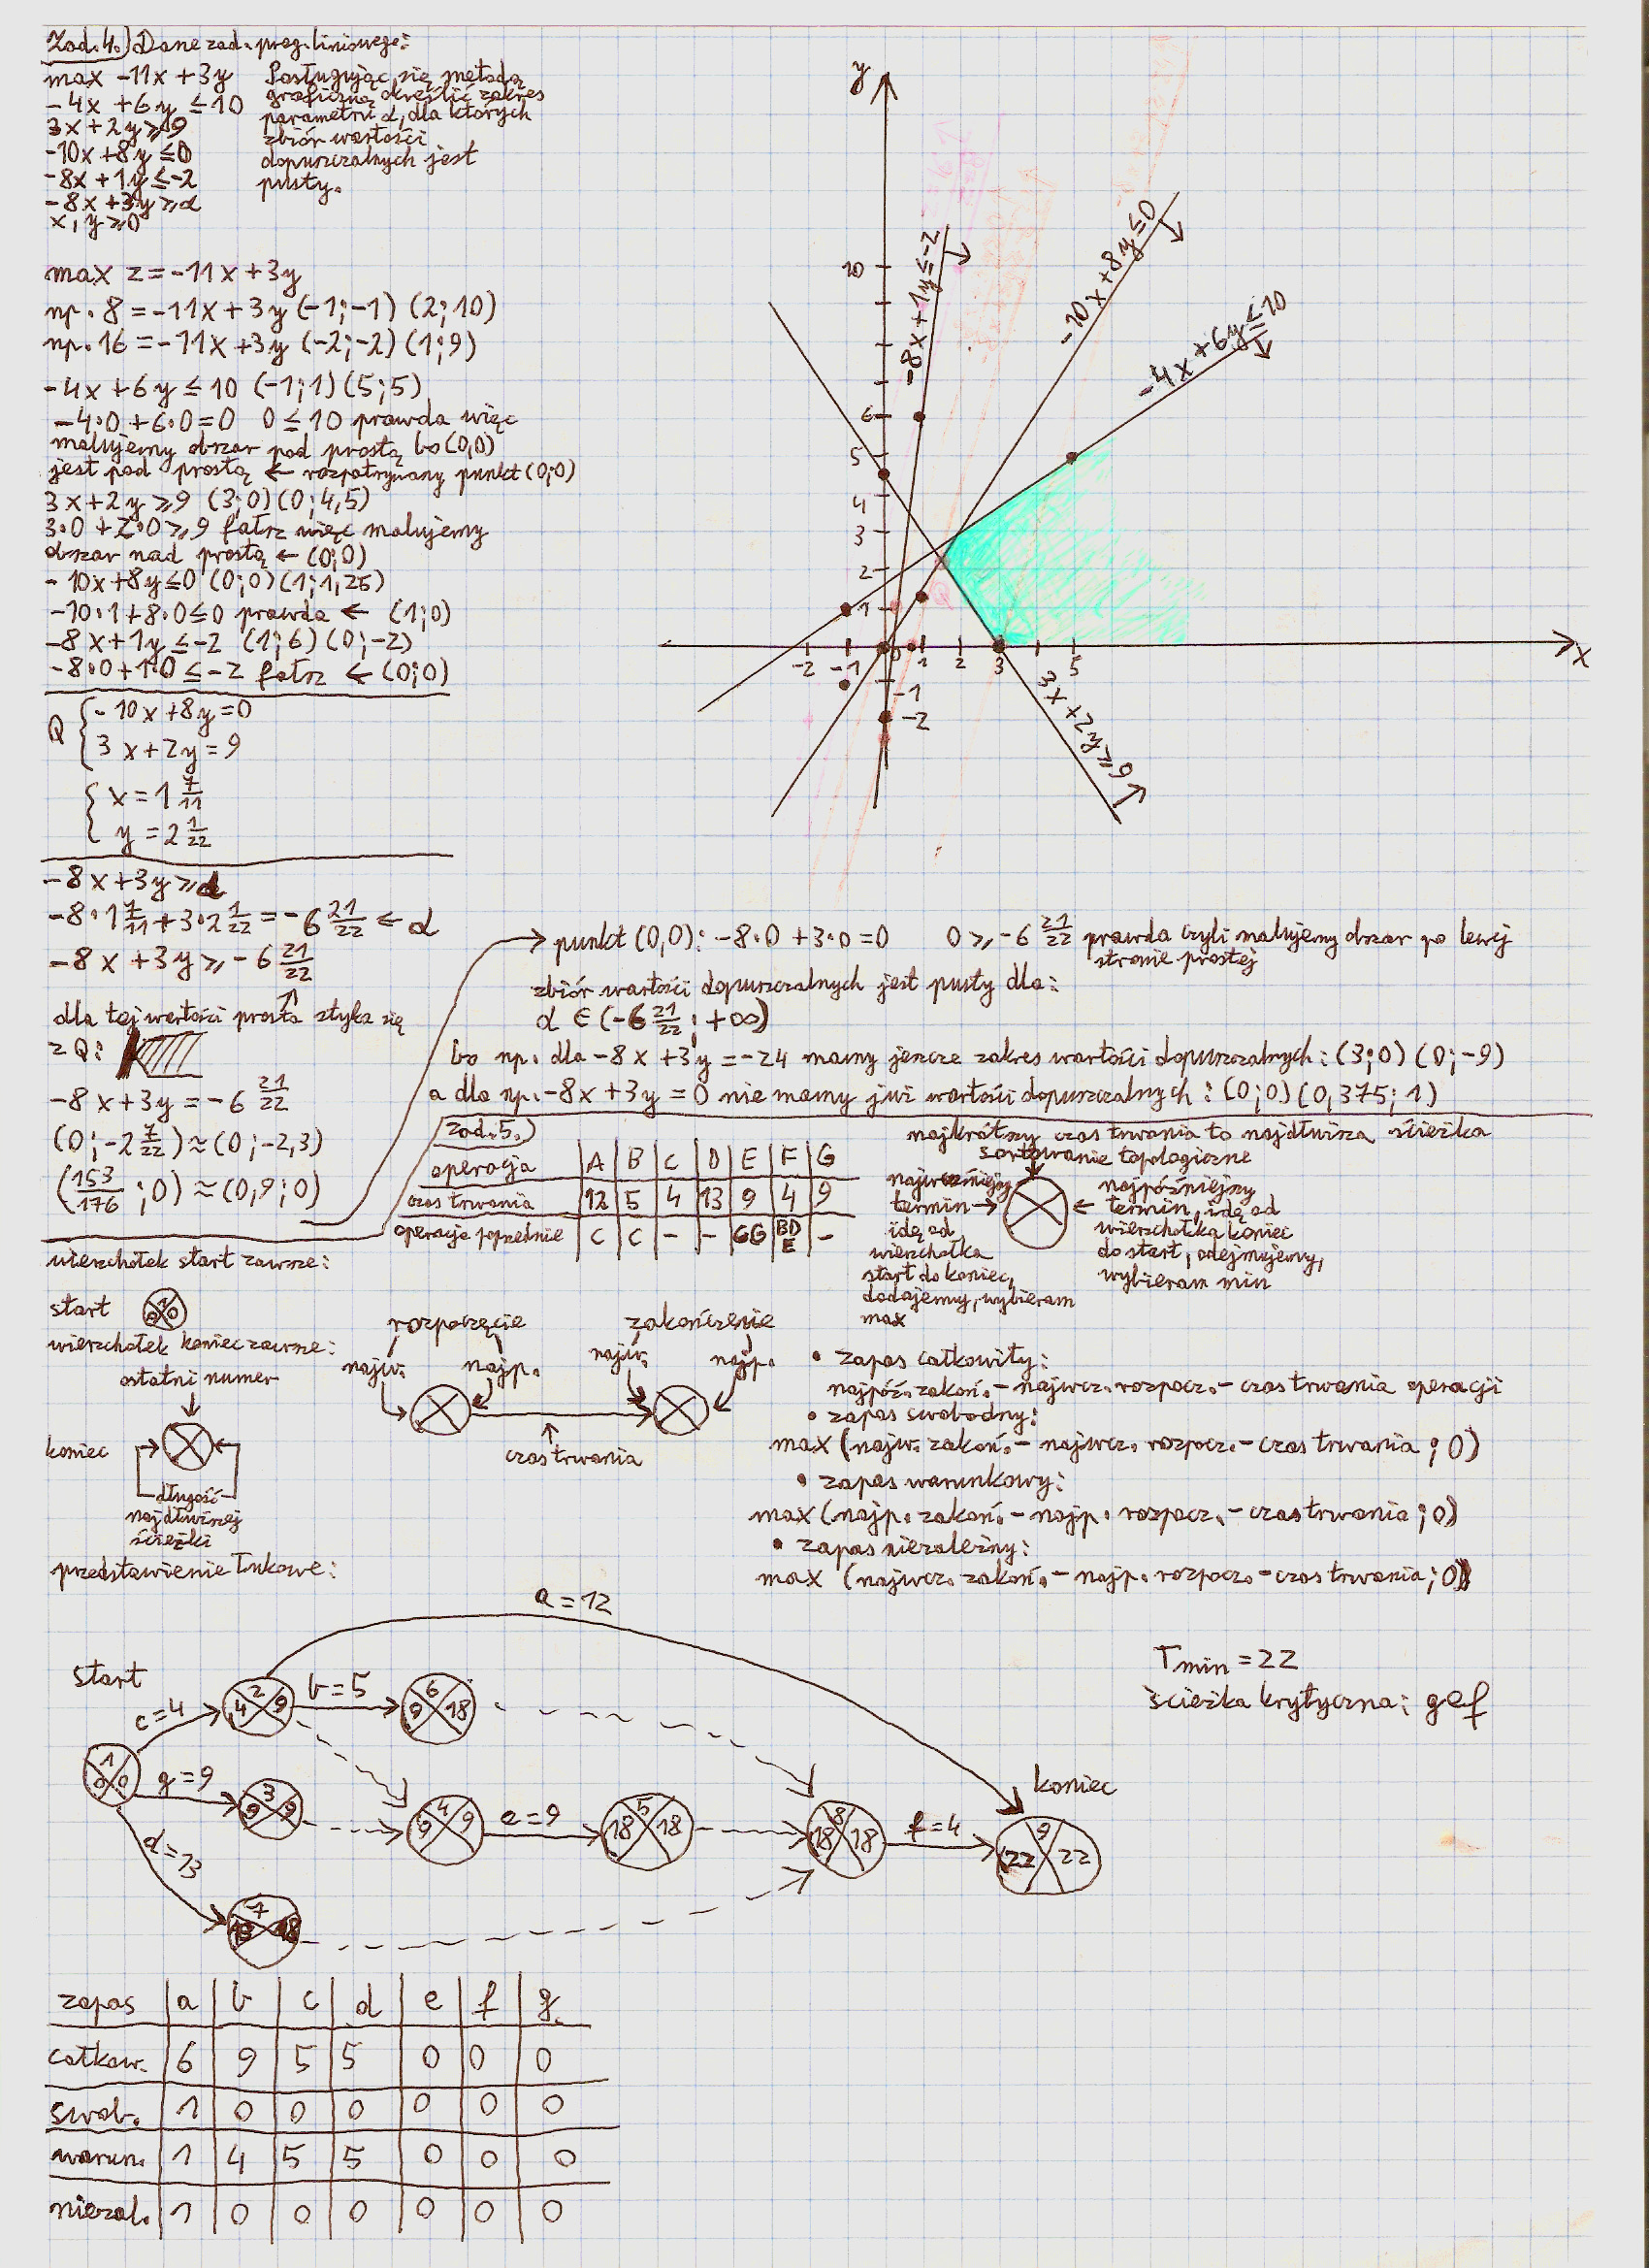 Zad.4.) Dane zad. prog. liniowego:
max -11x + 3y
-4x + 6y ≤ 10
3x + 2y ≥ 9
-10x + 8y ≤ 0
-8x + 1y ≤ -2
-8x + 3y ≥ α
x, y ≥ 0
Posługując się metodą
graficzną określić zakres
parametru α, dla których
zbiór wartości
dopuszczalnych jest
pusty.
max z = -11x + 3y
np. 8 = -11x + 3y (-1;-1) (2;10)
np. 16 = -11x + 3y (-2;-2) (1;9)
-4x + 6y ≤ 10 (-1;1) (5;5)
-4·0 + 6·0 = 0 0 ≤ 10 prawda więc
malujemy obszar pod prostą bo (0,0)
jest pod prostą ← rozpatrywany punkt (0;0)
3x + 2y ≥ 9 (3;0) (0;4,5)
3·0 + 2·0 ≥ 9 fałsz więc malujemy
obszar nad prostą ← (0;0)
-10x + 8y ≤ 0 (0;0) (1;1,25)
-10·1 + 8·0 ≤ 0 prawda ← (1;0)
-8x + 1y ≤ -2 (1;6) (0;-2)
-8·0 + 1·0 ≤ -2 fałsz ← (0;0)
Q { -10x + 8y = 0
3x + 2y = 9
{ x = 1 7/11
y = 2 1/22
-8x + 3y ≥ α
-8·1 7/11 + 3·2 1/22 = -6 21/22 ← α
-8x + 3y ≥ -6 21/22
dla tej wartości prosta styka się
z Q:
-8x + 3y = -6 21/22
(0; -2 7/22) ≈ (0; -2,3)
(153/176; 0) ≈ (0,9; 0)
y
10
6
5
4
3
2
1
-2 -1 0 1 2 3 5 x
-1
-2
-8x + 1y ≤ -2
-10x + 8y ≤ 0
-4x + 6y ≤ 10
3x + 2y ≥ 9
Q
punkt (0,0): -8·0 + 3·0 = 0 0 ≥ -6 21/22 prawda czyli malujemy obszar po lewej
stronie prostej
zbiór wartości dopuszczalnych jest pusty dla:
α ∈ (-6 21/22; +∞)
bo np. dla -8x + 3y = -24 mamy jeszcze zakres wartości dopuszczalnych: (3;0) (0;-9)
a dla np. -8x + 3y = 0 nie mamy już wartości dopuszczalnych: (0;0) (0,375; 1)
zad.5.)
operacja A B C D E F G
czas trwania 12 5 4 13 9 4 9
operacje poprzednie C C - - CG BDE -
najkrótszy czas trwania to najdłuższa ścieżka
sortowanie topologiczne
najwcześniejszy
termin →
idę od
wierzchołka
start do koniec,
dodajemy, wybieram
max
najpóźniejszy
← termin, idę od
wierzchołka koniec
do start, odejmujemy,
wybieram min
wierzchołek start zawsze:
start 1 0 0
wierzchołek koniec zawsze:
ostatni numer
koniec
długość
najdłuższej
ścieżki
rozpoczęcie zakończenie
najw. najp. najw. najp.
czas trwania
• zapas całkowity:
najpóź. zakoń. - najwcz. rozpocz. - czas trwania operacji
• zapas swobodny:
max (najw. zakoń. - najwcz. rozpocz. - czas trwania ; 0)
• zapas warunkowy:
max (najp. zakoń. - najp. rozpocz. - czas trwania ; 0)
• zapas niezależny:
max (najwcz. zakoń. - najp. rozpocz. - czas trwania ; 0)
przedstawienie łukowe:
a = 12
start
c=4 2 4 9 b=5 6 9 18
1 0 0 g=9 3 9 9 4 9 9 e=9 5 18 18 8 18 18 f=4 9 22 22
koniec
d=13 7 13 18
Tmin = 22
ścieżka krytyczna: gef
zapas a b c d e f g
całkow. 6 9 5 5 0 0 0
swob. 1 0 0 0 0 0 0
warun. 1 4 5 5 0 0 0
niezal. 1 0 0 0 0 0 0